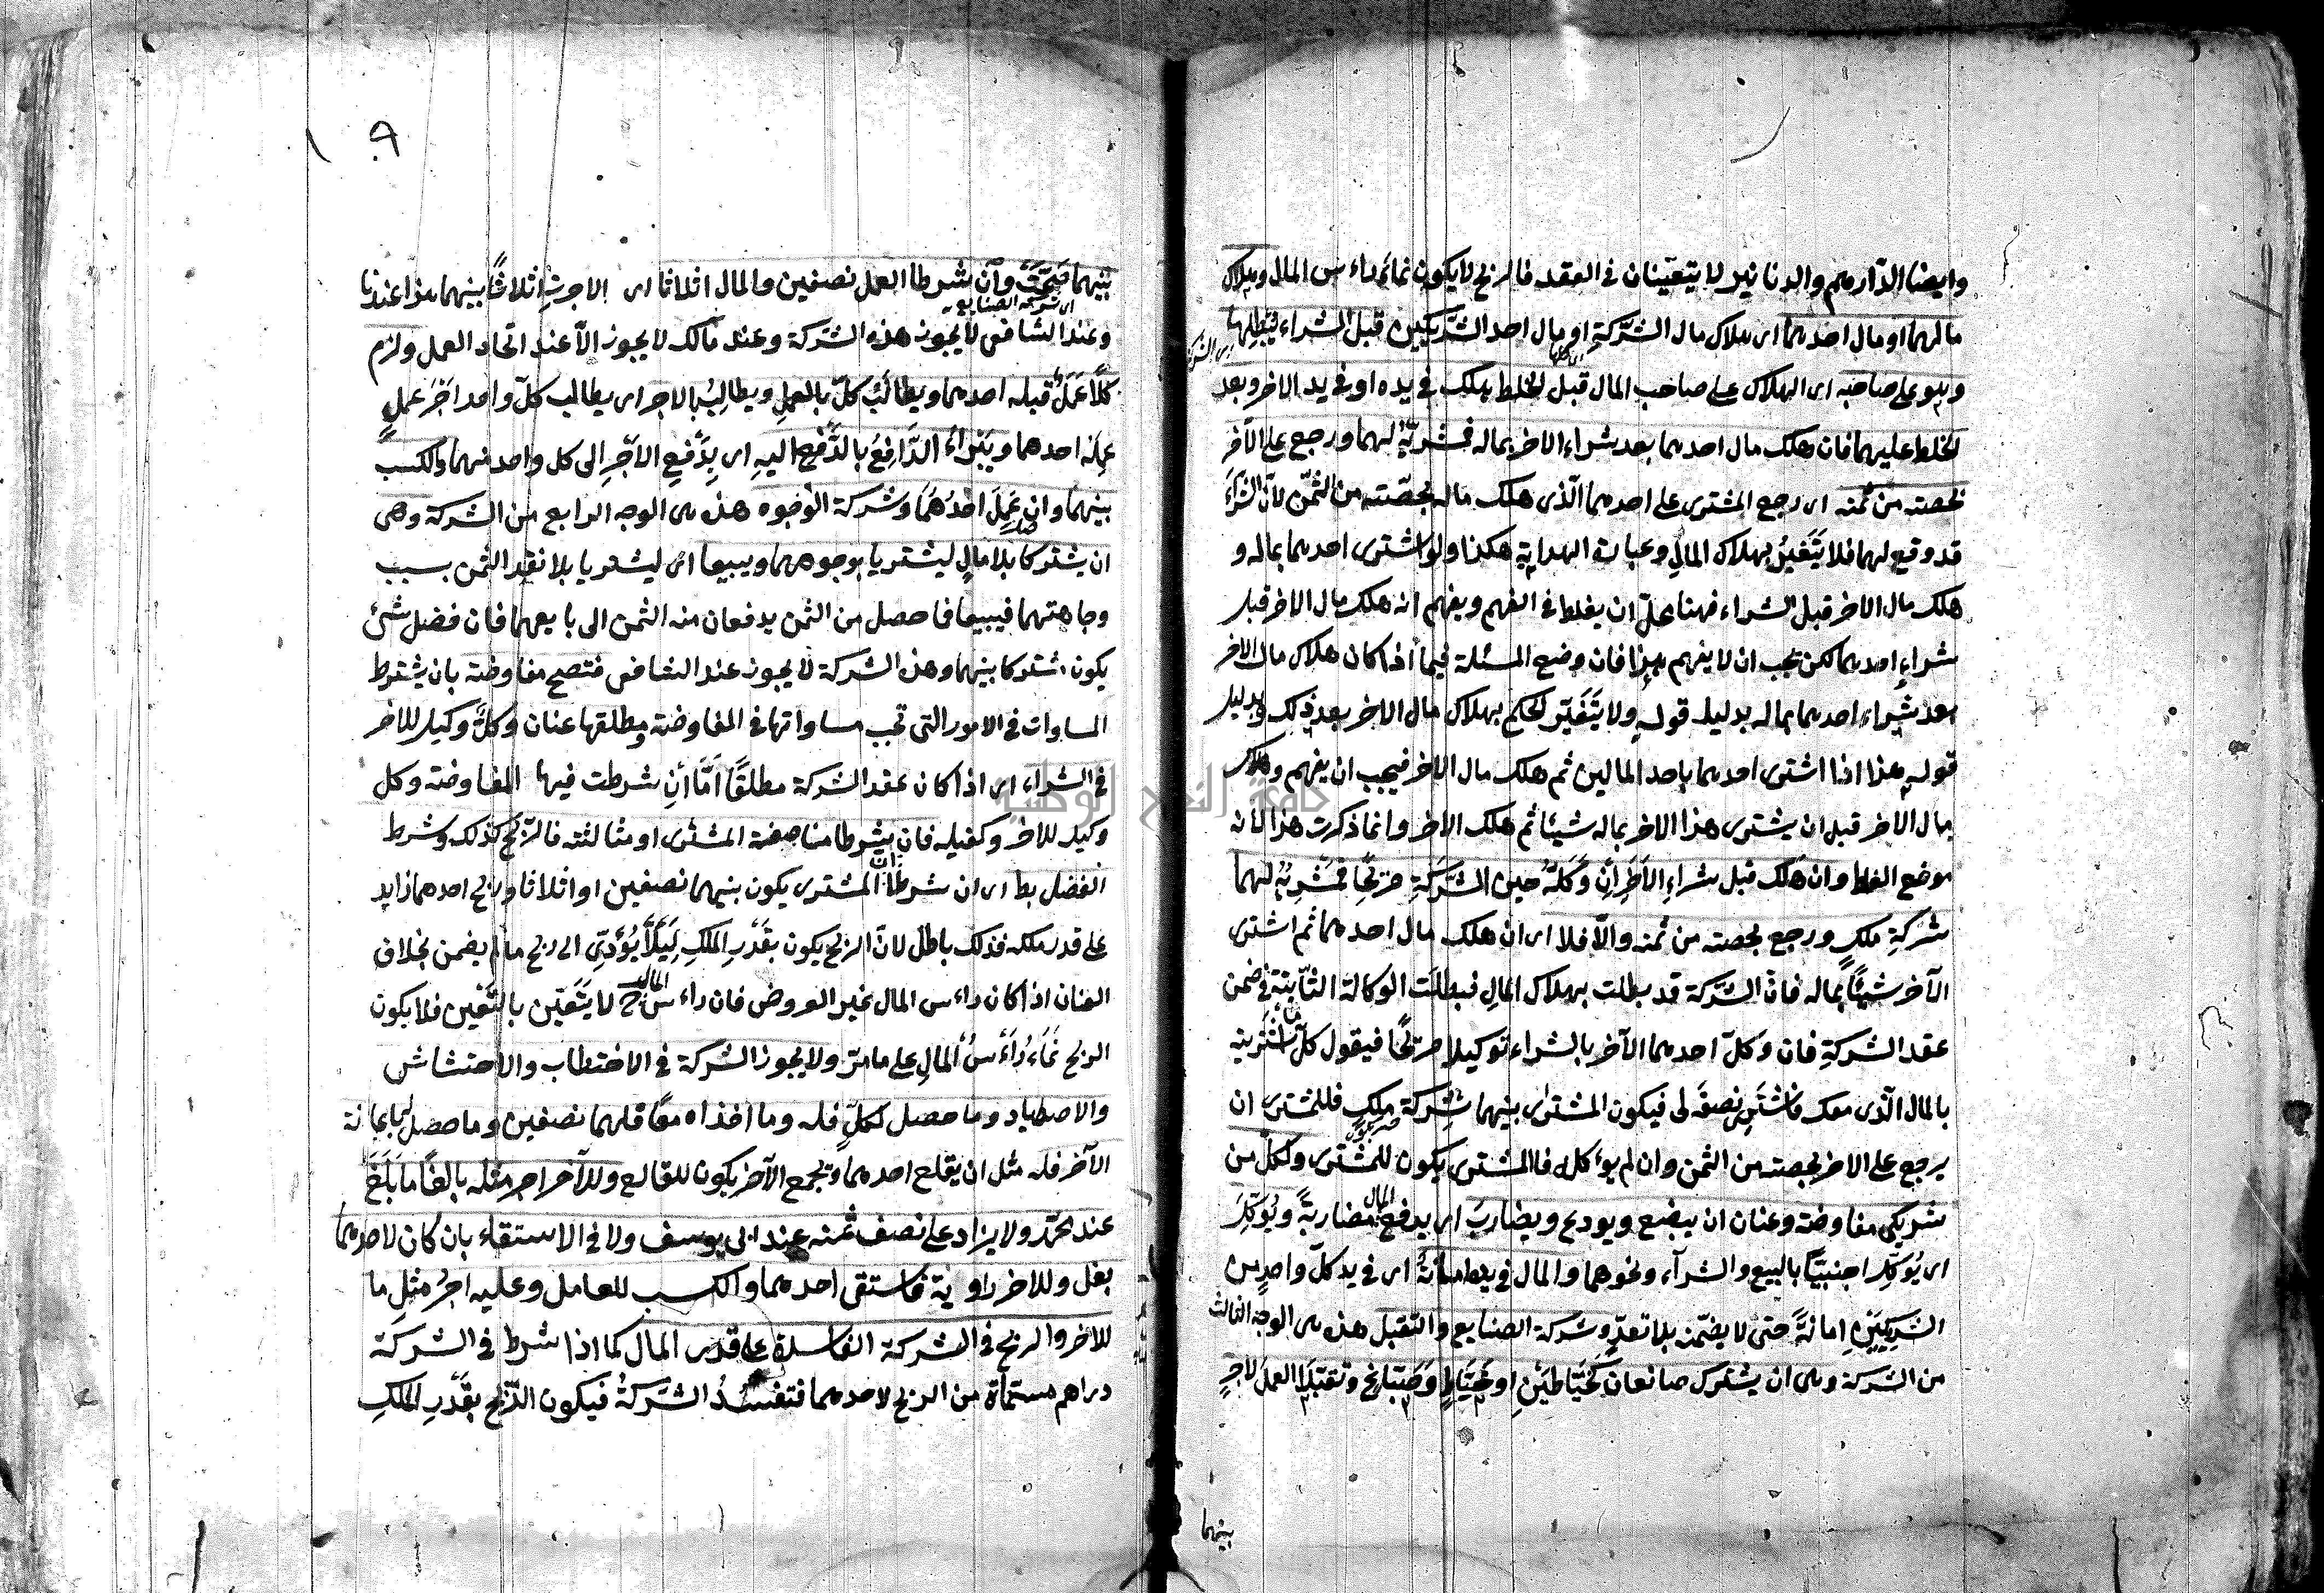 وايضا الدراهم والدنانير لا يتعينان في العقد فالربح لا يكون نماء راءس المال وهلاك
مالهما او مال احدهما اى هلاك مال الشركة او مال احد الشريكين قبل الشراء يبطلها
اى الشركة
وهو على صاحبه اى الهلاك على صاحب المال قبل الخلط هلك في يده او في يد الاخر وبعد
الخلط عليهما فان هلك مال احدهما بعد شراء الاخر بماله فمشريّه لهما ورجع على الآخر
بحصته من ثمنه اى رجع المشترى على احدهما الّذى هلك ماله بحصّته من الثمن لانّ الشراء
قد وقع لهما فلا يتغيّر بهلاك المال وعبارة الهداية هكذا ولو اشترى احدهما بماله و
هلك مال الاخر قبل الشراء فهنا محلّ ان يغلط في الفهم ويفهم انه هلك مال الاخر قبل
شراء احدهما لكن يجب ان لا يفهم هذا فان وضع المسئلة فيما اذا كان هلاك مال الاخر
بعد شراء احدهما بماله بدليل قوله ولا يتغيّر الحكم بهلاك مال الاخر بعد ذلك وبدليل
قوله هذا اذا اشترى احدهما باحد المالين ثم هلك مال الاخر فيجب ان يفهم وهلاك
مال الاخر قبل ان يشترى هذا الاخر بماله شيئا ثم هلك الاخر وانما ذكرت هذا لانه
موضع الغلط وان هلك قبل شراء الآخر ان وكّله حين الشركة صريحًا فمشريّه لهما
شركة ملك ورجع بحصته من ثمنه والّا فلا اى ان هلك مال احدهما ثم اشترى
الآخر شيئًا بماله فانّ الشركة قد بطلت بهلاك المال فبطلت الوكالة الثابتة في ضمن
عقد الشركة فان وكّل احدهما الآخر بالشراء توكيلا صريحًا فيقول كلّ ما اشتريته
بالمال الّذى معك فاشتر نصفه لى فيكون المشترى بينهما شركة ملك فللمشترى ان
يرجع على الاخر بحصته من الثمن وان لم يوكله فالمشترى يكون للمشترى ولكلّ من
شريكى مفاوضة وعنان ان يبضع ويودع ويضارب اى يدفع المال مضاربة ويوكّل
اى يوكّل اجنبيّا بالبيع والشراء ونحوهما والمال في يده امانة اى في يد كلّ واحد من
الشريكين امانة حتى لا يضمن بلا تعدّ وشركة الصنايع والتقبل هذه هى الوجه الثالث
من الشركة وهى ان يشترك صانعان كخيّاطين او خيّاط وصبّاغ وتقبّلا العمل لاجر
بينهما
بينهما صحّت وان شرطا العمل نصفين والمال اثلاثا اى الاجرة اثلاثًا بينهما هذا عندنا
اى شركة الصنايع
وعند الشافعى لا يجوز هذه الشركة وعند مالك لا يجوز الّا عند اتحاد العمل ولزم
كلّا عمل قبله احدهما ويطالب كلّ بالعمل ويطالب بالاجر اى يطالب كلّ واحد اجر عمل
عمله احدهما ويبراء الدّافع بالدّفع اليه اى بدفع الاجر الى كل واحد منهما والكسب
بينهما وان عمل احدهما وشركة الوجوه هذه هى الوجه الرابع من الشركة وهى
ان يشتركا بلا مال ليشتريا بوجوههما ويبيعا اى ليشتريا بلا نقد الثمن بسبب
وجاهتهما فيبيعا فما حصل من الثمن يدفعان منه الثمن الى بايعهما فان فضل شئ
يكون مشتركا بينهما وهذه الشركة لا يجوز عند الشافعى فتصح مفاوضة بان يشترط
المساوات في الامور التى تجب مساواتها في المفاوضة ومطلقها عنان وكلّ وكيل للاخر
في الشراء اى اذا كان عقد الشركة مطلقًا امّا ان شرطت فيها المفاوضة وكل
وكيل للاخر وكفيله فان شرطا مناصفة المشترى او مثالثته فالربح كذلك وشرط
الفضل بط اى ان شرطا ان المشترى يكون بينهما نصفين او اثلاثا وربح احدهما زايد
على قدر ملكه فذلك باطل لانّ الربح يكون بقدر الملك لئلّا يؤدّى الى ربح ما لم يضمن بخلاف
العنان اذا كان راءس المال غير العروض فان راءس المال ح لا يتعيّن بالتعيين فلا يكون
الربح نماء راءس المال على ما مرّ ولا يجوز الشركة في الاحتطاب والاحتشاش
والاصطياد وما حصل لكلّ فله وما اخذاه معًا فلهما نصفين وما حصل لهما باعانة
الآخر فله مثل ان يقلع احدهما ويجمع الآخر يكون للقالع وللآخر اجر مثله بالغًا ما بلغ
عند محمّد ولا يزاد على نصف ثمنه عند ابى يوسف ولا في الاستقاء بان كان لاحدهما
بغل وللاخر راوية فاستقى احدهما والكسب للعامل وعليه اجر مثل ما
للاخر والربح في الشركة الفاسدة على قدر المال كما اذا شرط في الشركة
دراهم مسمّاة من الربح لاحدهما فتفسد الشركة فيكون الرّبح بقدر الملك